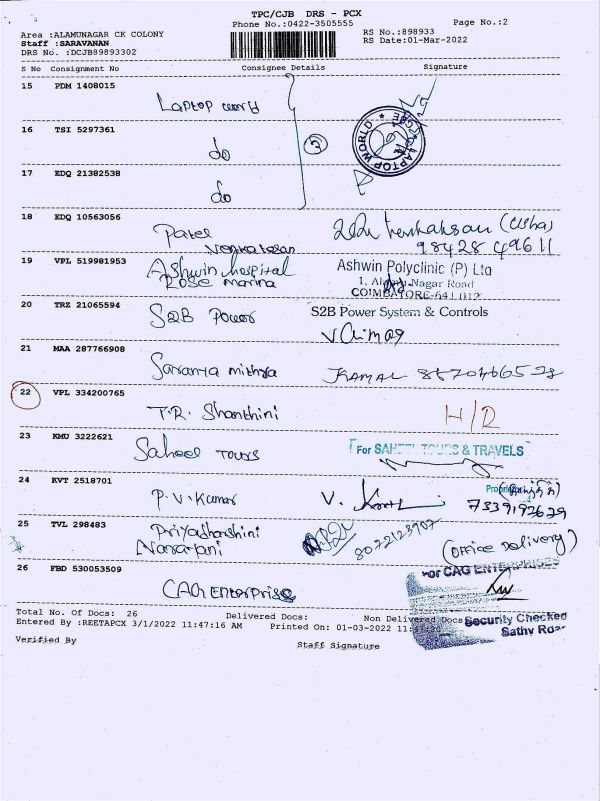 TPC/CJB DRS - PCX
Phone No.:0422-3505555 Page No.:2
Area :ALAMUNAGAR CK COLONY RS No.:898933
Staff :SARAVANAN RS Date:01-Mar-2022
DRS No. :DCJB89893302
S No Consignment No Consignee Details Signature
15 PDM 1408015
Laptop world
LAPTOP WORLD
16 TSI 5297361
do
5
17 EDQ 21382538
do
18 EDQ 10563056
Patel
Venkatesan
Venkatesan (Usha)
98428 49611
19 VPL 519981953
Ashwin hospital
Rose marina
Ashwin Polyclinic (P) Ltd
Nagar Road
COIMBATORE-641 012
20 TRZ 21065594
S2B Power
S2B Power System & Controls
21 MAA 287766908
Saranya mithra
KAMAL
22 VPL 334200765
T.R. Shanthini
23 KMU 3222621
Saheel Tours
For SAHEEL TOURS & TRAVELS
24 KVT 2518701
P.V. Kumar
V.
7339192629
25 TVL 298483
Priyadharshini
Natarajani
8022123902
(Office Delivery)
26 FBD 530053509
CAG Enterprise
For CAG ENTERPRISES
Total No. of Docs: 26 Delivered Docs: Non Delivered Docs
Security Checked
Entered By :REETAPCX 3/1/2022 11:47:16 AM Printed On: 01-03-2022
Sathy Road
Verified By Staff Signature